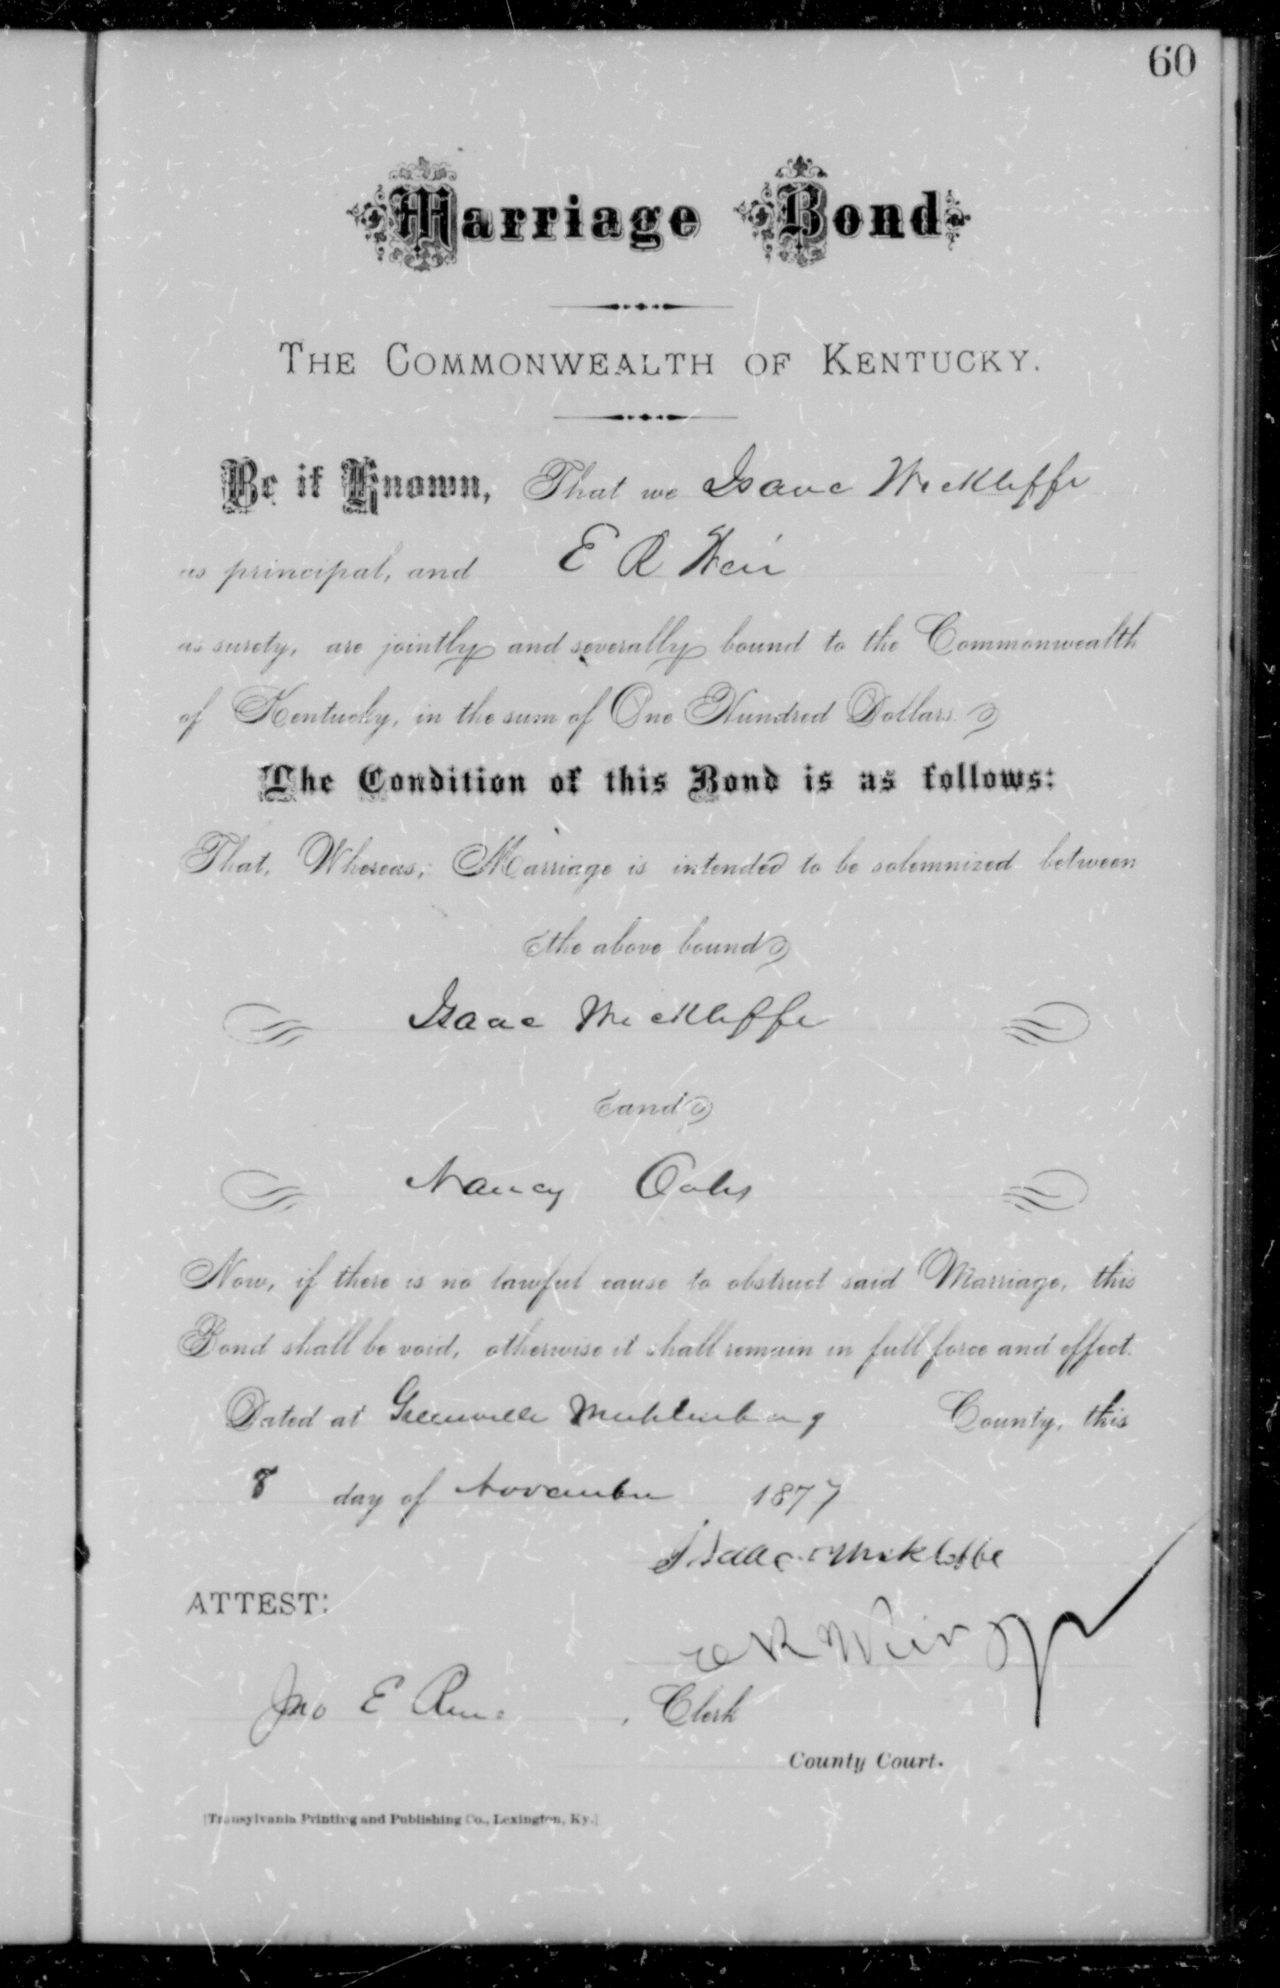 60
Marriage Bond
THE COMMONWEALTH OF KENTUCKY.
Be it Known, That we Isaac Wickliffe
as principal, and E R Weir
as surety, are jointly and severally bound to the Commonwealth
of Kentucky, in the sum of One Hundred Dollars.
The Condition of this Bond is as follows:
That, Whereas, Marriage is intended to be solemnized between
the above bound
Isaac Wickliffe
and
Nancy Oates
Now, if there is no lawful cause to obstruct said Marriage, this
Bond shall be void, otherwise it shall remain in full force and effect.
Dated at Greenville Muhlenburg County, this
8 day of November 1877
Isaac Wickliffe
ATTEST:
E R Weir
Jno E Reno, Clerk
County Court.
[Transylvania Printing and Publishing Co., Lexington, Ky.]